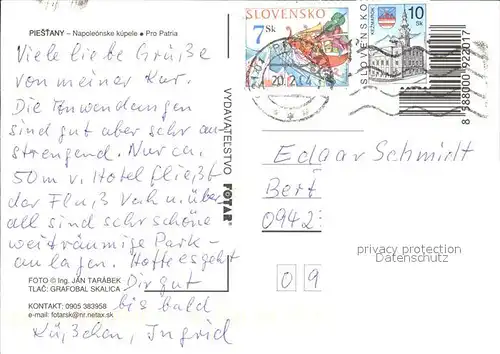 PIEŠŤANY – Napoleónske kúpele • Pro Patria
Viele liebe Grüße
von meiner Kur.
Die Anwendungen
sind gut aber sehr an-
strengend. Nur ca.
50m v. Hotel fließt
der Fluß Vah u. über-
all sind sehr schöne
weiträumige Park-
anlagen. Hoffe es geht
Dir gut
bis bald
Küßchen, Ingrid
FOTO © Ing. JÁN TARÁBEK
TLAČ: GRAFOBAL SKALICA
KONTAKT: 0905 383958
e-mail: fotarsk@nr.netax.sk
VYDAVATEĽSTVO FOTAR
SLOVENSKO
7 Sk
20.2.04
SLOVENSKO
KEŽMAROK
10 Sk
8588000922017
Edgar Schmidt
Bert
0942
0 9
privacy protection
Datenschutz